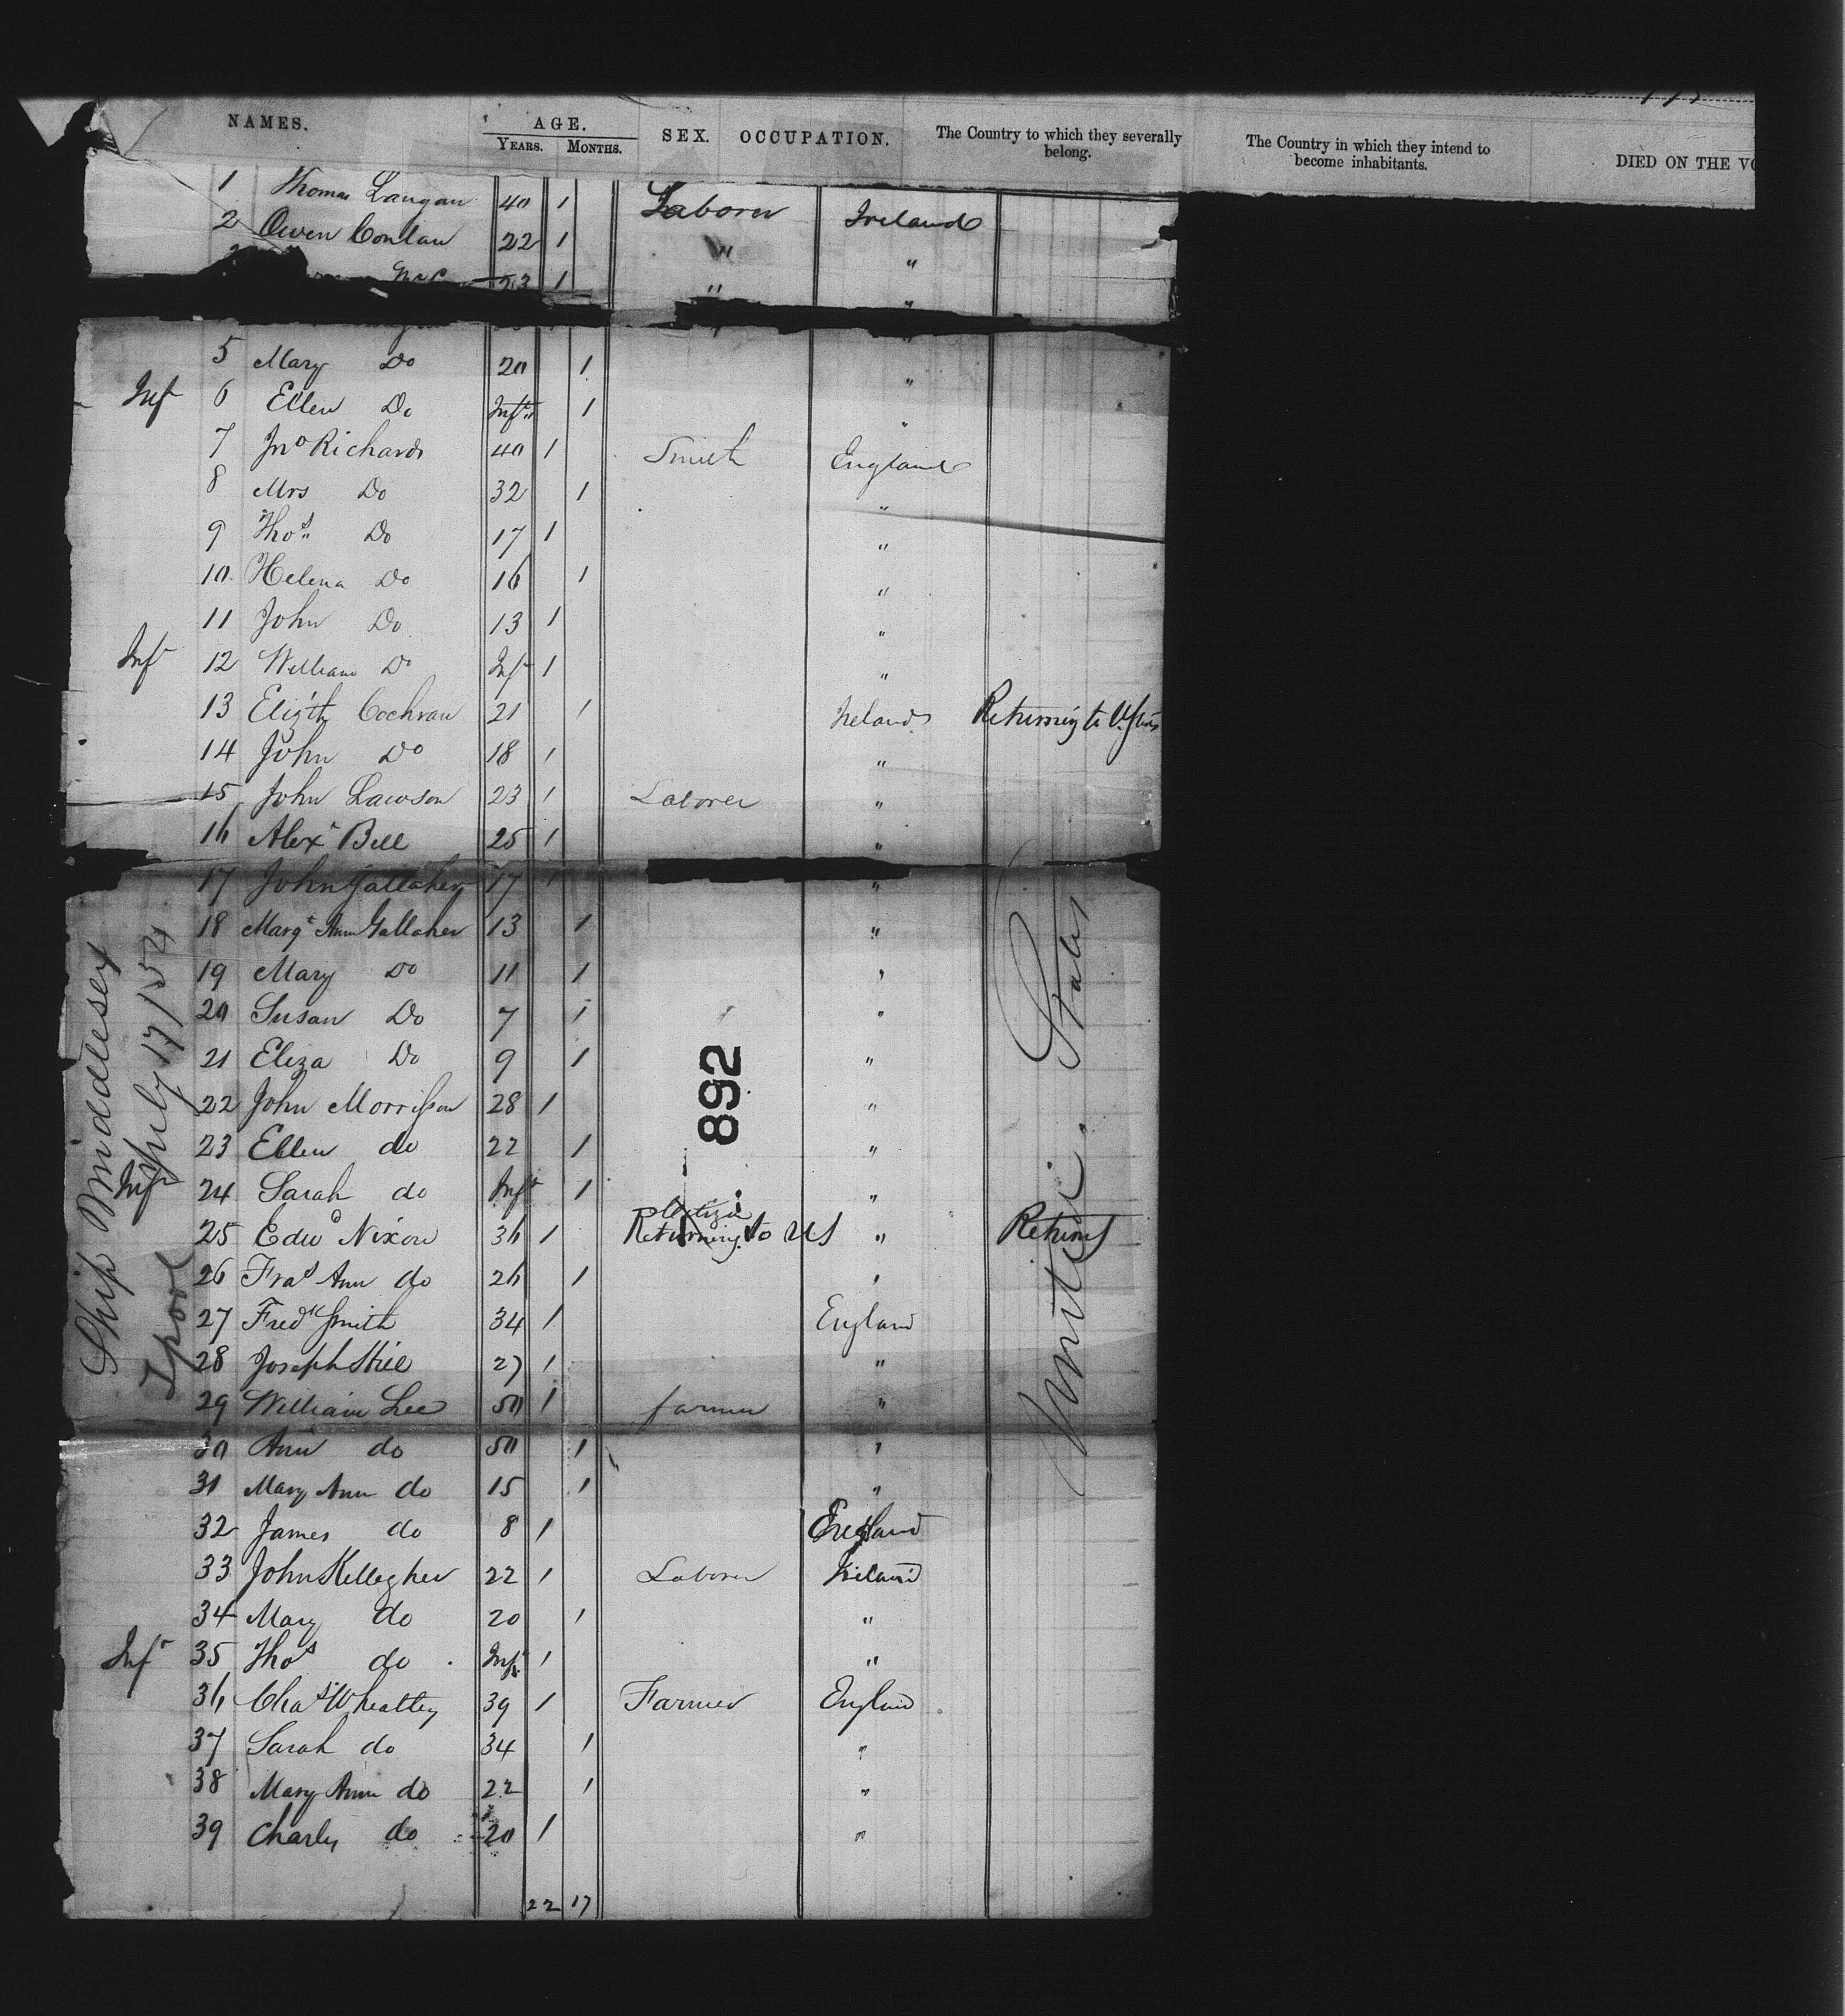 NAMES. AGE. SEX. OCCUPATION. The Country to which they severally belong. The Country in which they intend to become inhabitants. DIED ON THE VO
YEARS. MONTHS.
1 Thomas Langan 40 1 Laborer Ireland
2 Owen Conlan 22 1 " "
23 1 " "
5 Mary Do 20 1 "
Inft 6 Ellen Do Inft 1 "
7 Jno Richards 40 1 Smith England
8 Mrs Do 32 1 "
9 Thos Do 17 1 "
10 Helena Do 16 1 "
11 John Do 13 1 "
Inft 12 William Do Inft 1 "
13 Elizth Cochran 21 1 Ireland Returning to U. States
14 John Do 18 1 "
15 John Lawson 23 1 Laborer "
16 Alexr Bell 25 1 "
17 John Gallaher 17 1 "
18 Margt Ann Gallaher 13 1 "
19 Mary Do 11 1 "
20 Susan Do 7 1 "
21 Eliza Do 9 1 "
22 John Morrison 28 1 "
23 Ellen do 22 1 "
Inft 24 Sarah do Inft 1 "
25 Edwd Nixon 36 1 Returning to US " Returns
26 Fras Ann do 26 1 "
27 Fredk Smith 34 1 England
28 Joseph Hill 27 1 "
29 William Lee 50 1 farmer "
30 Ann do 50 1 "
31 Mary Ann do 15 1 "
32 James do 8 1 England
33 John Kellegher 22 1 Laborer Ireland
34 Mary do 20 1 "
Inft 35 Thos do Inft 1 "
36 Chas Wheatley 39 1 Farmer England
37 Sarah do 34 1 "
38 Mary Ann do 22 1 "
39 Charly do 20 1 "
22 17
Ship Middlesex
July 17/54
Lpool
892
United States